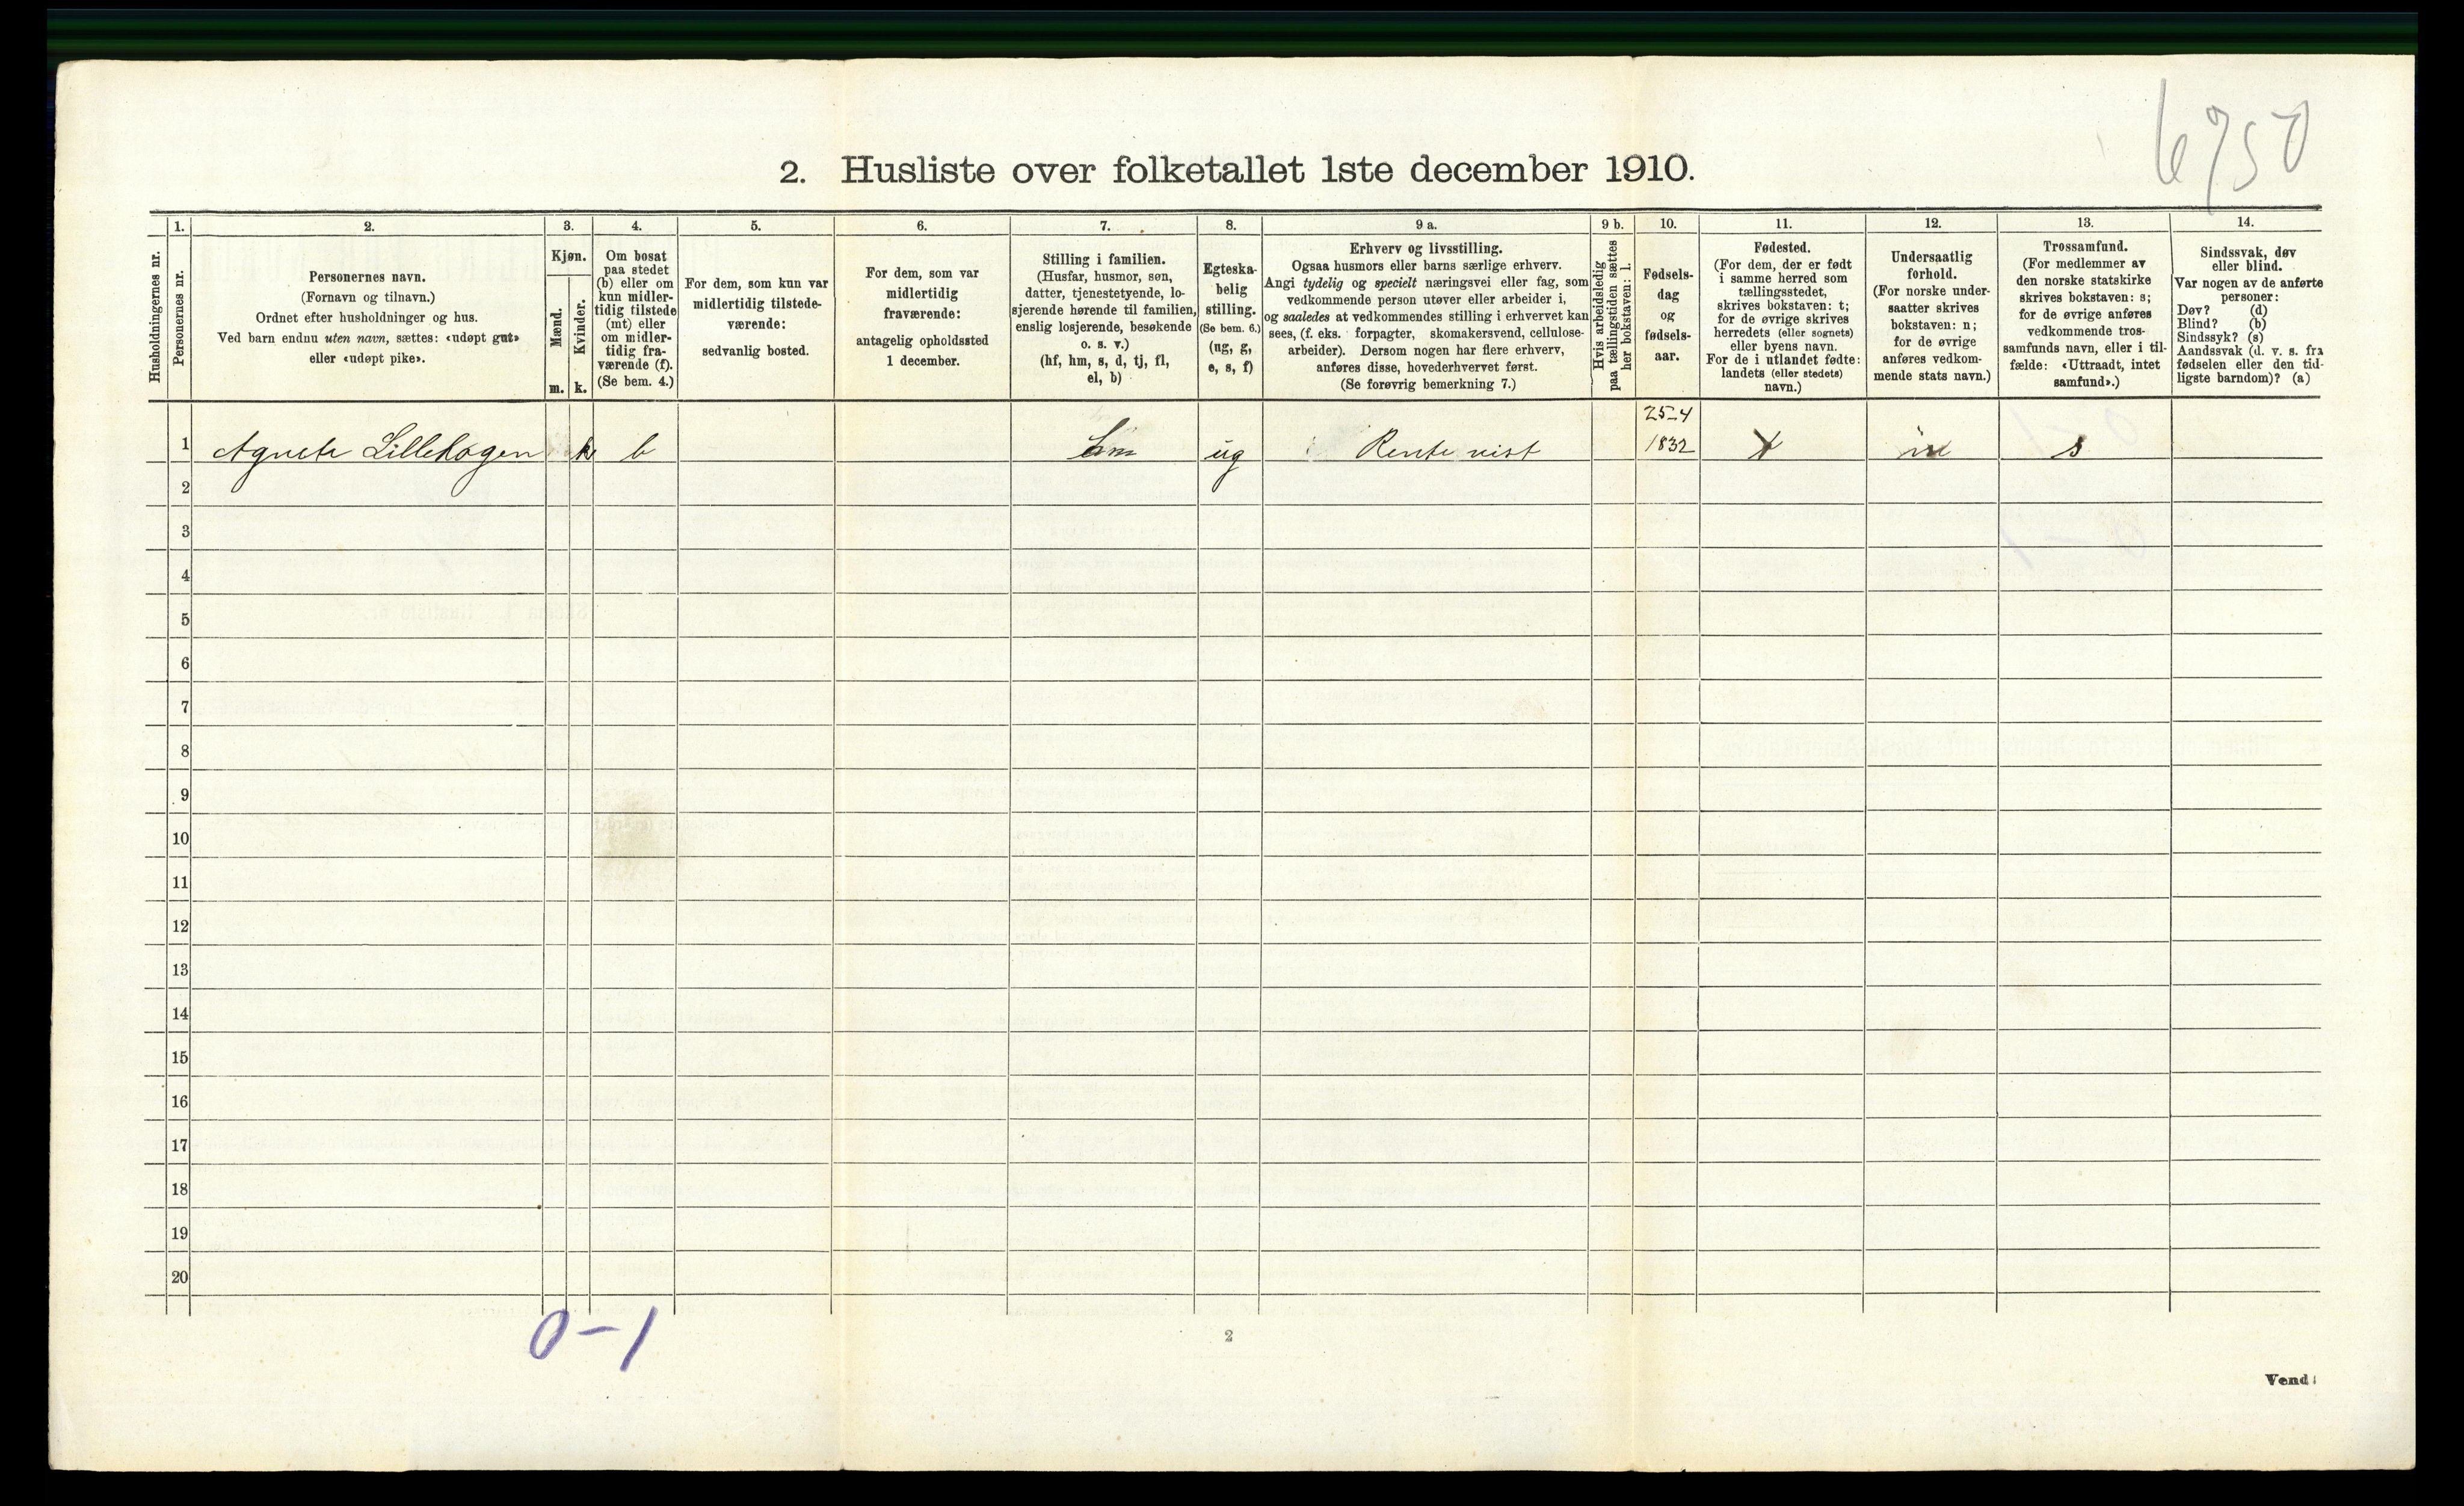 6750
2. Husliste over folketallet 1ste december 1910.
Husholdningernes nr.
1.
Personernes nr.
2.
Personernes navn.
(Fornavn og tilnavn.)
Ordnet efter husholdninger og hus.
Ved barn endnu uten navn, sættes: «udøpt gut»
eller «udøpt pike».
3.
Kjøn.
Mænd.
m.
Kvinder.
k.
4.
Om bosat
paa stedet
(b) eller om
kun midler-
tidig tilstede
(mt) eller
om midler-
tidig fra-
værende (f).
(Se bem. 4.)
5.
For dem, som kun var
midlertidig tilstede-
værende:
sedvanlig bosted.
6.
For dem, som var
midlertidig
fraværende:
antagelig opholdssted
1 december.
7.
Stilling i familien.
(Husfar, husmor, søn,
datter, tjenestetyende, lo-
sjerende hørende til familien,
enslig losjerende, besøkende
o. s. v.)
(hf, hm, s, d, tj, fl,
el, b)
8.
Egteska-
belig
stilling.
(Se bem. 6.)
(ug, g,
e, s, f)
9 a.
Erhverv og livsstilling.
Ogsaa husmors eller barns særlige erhverv.
Angi tydelig og specielt næringsvei eller fag, som
vedkommende person utøver eller arbeider i,
og saaledes at vedkommendes stilling i erhvervet kan
sees, (f. eks. forpagter, skomakersvend, cellulose-
arbeider). Dersom nogen har flere erhverv,
anføres disse, hovederhvervet først.
(Se forøvrig bemerkning 7.)
9 b.
Hvis arbeidsledig
paa tællingstiden sættes
her bokstaven: l.
10.
Fødsels-
dag
og
fødsels-
aar.
11.
Fødested.
(For dem, der er født
i samme herred som
tællingsstedet,
skrives bokstaven: t;
for de øvrige skrives
herredets (eller sognets)
eller byens navn.
For de i utlandet fødte:
landets (eller stedets)
navn.)
12.
Undersaatlig
forhold.
(For norske under-
saatter skrives
bokstaven: n;
for de øvrige
anføres vedkom-
mende stats navn.)
13.
Trossamfund.
(For medlemmer av
den norske statskirke
skrives bokstaven: s;
for de øvrige anføres
vedkommende tros-
samfunds navn, eller i til-
fælde: «Uttraadt, intet
samfund».)
14.
Sindssvak, døv
eller blind.
Var nogen av de anførte
personer:
Døv? (d)
Blind? (b)
Sindssyk? (s)
Aandssvak (d. v. s. fra
fødselen eller den tid-
ligste barndom)? (a)
25-4
1 Agnete Lillehagen k b hm ug Rentenist 1832 t n s
2
3
4
5
6
7
8
9
10
11
12
13
14
15
16
17
18
19
20
0-1
2
Vend!